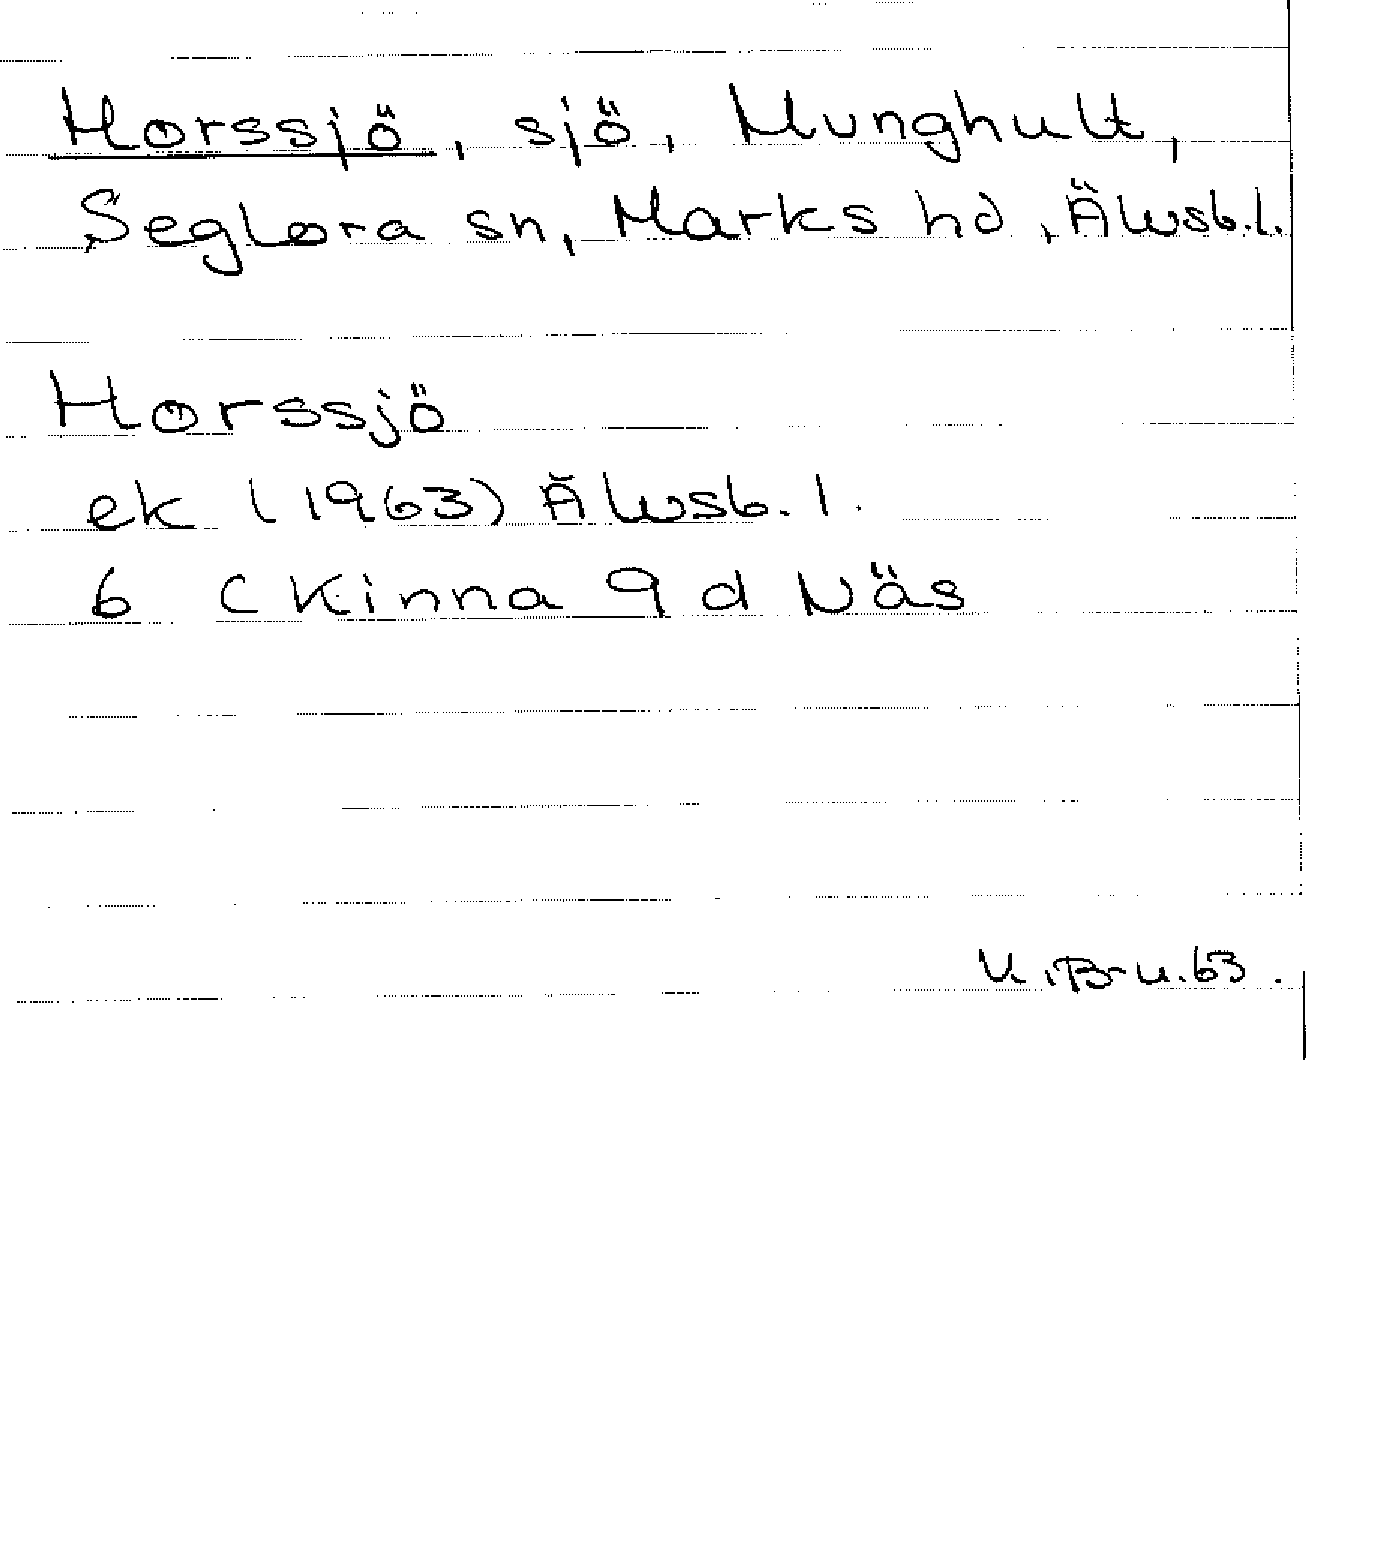 Horssjö, sjö, Munghult,
Seglora sn, Marks hd, Älvsb.l.
Horssjö
ek (1963) Älvsb. l.
6 C Kinna 9 d Näs